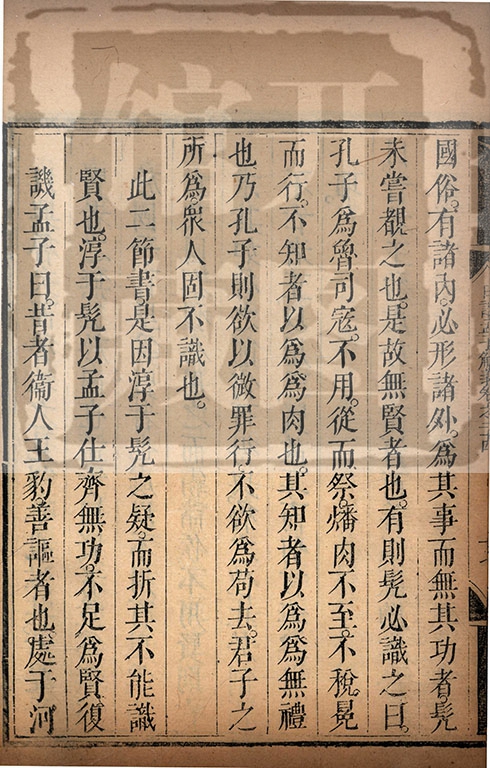 國俗。有諸內。必形諸外。爲其事而無其功者。髡
未嘗覩之也。是故無賢者也。有則髡必識之。曰。
孔子爲魯司寇。不用。從而祭。燔肉不至。不稅冕
而行。不知者以爲爲肉也。其知者以爲爲無禮
也。乃孔子則欲以微罪行。不欲爲苟去。君子之
所爲。衆人固不識也。
此二節書。是因淳于髡之疑。而折其不能識
賢也。淳于髡以孟子仕齊無功。不足爲賢。復
譏孟子曰。昔者衞人王豹。善謳者也。處于河